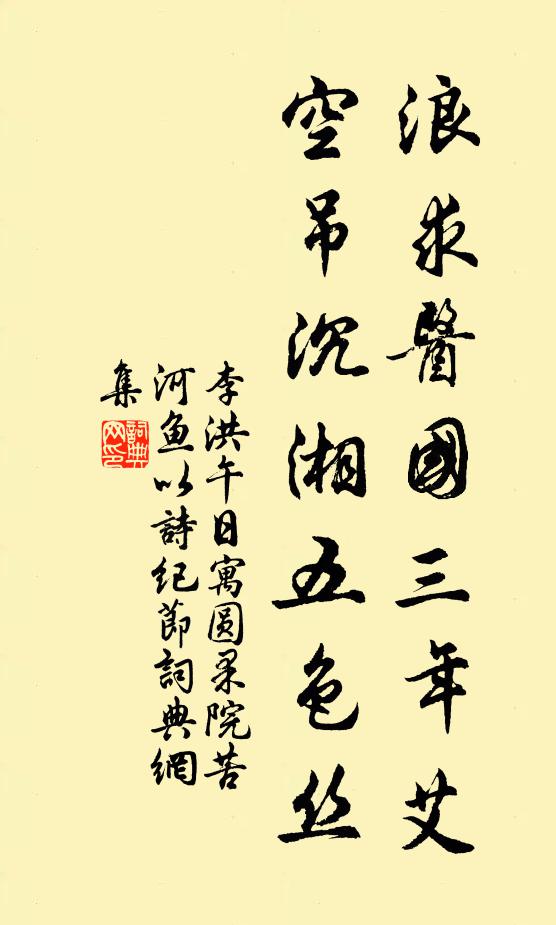 浪求醫國三年艾
空吊沉湘五色丝
李洪午日寓圆果院苦
河鱼以詩紀節詞典網
集
詞典網印